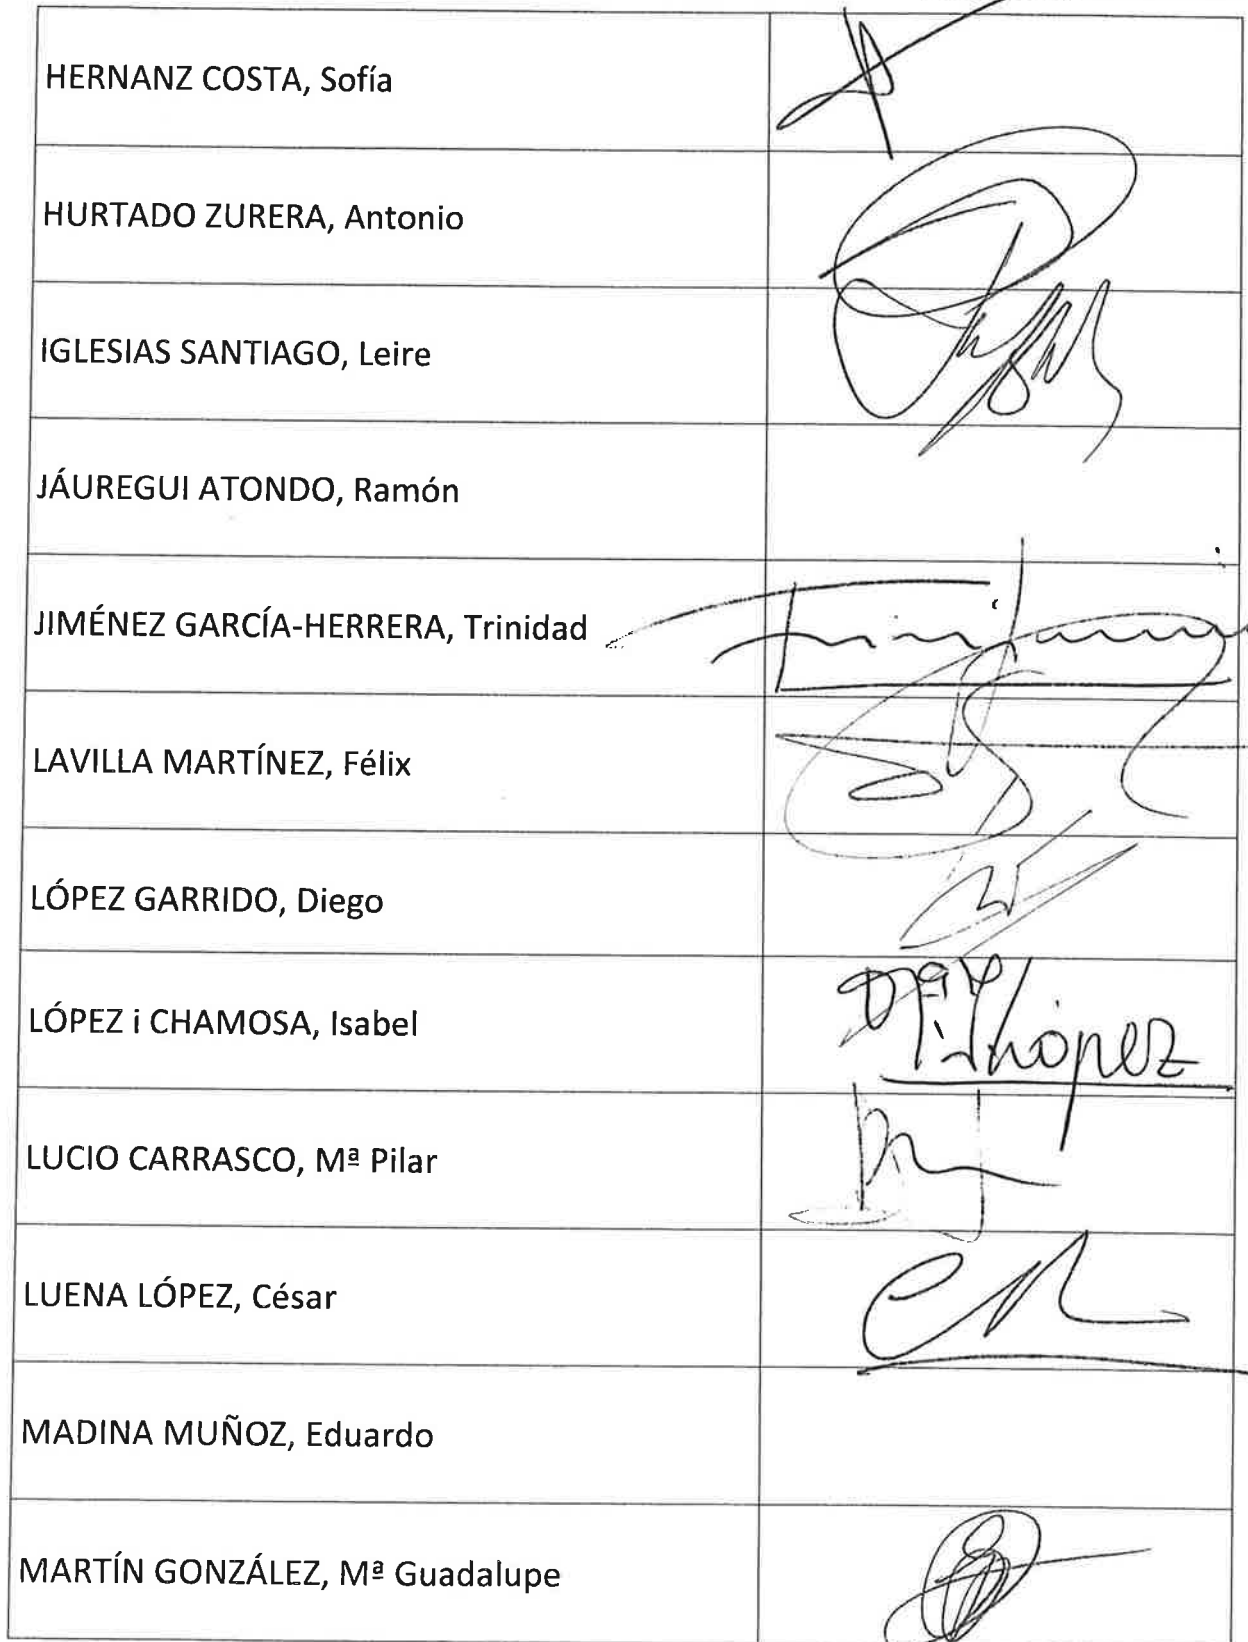 HERNANZ COSTA, Sofía
HURTADO ZURERA, Antonio
IGLESIAS SANTIAGO, Leire
JÁUREGUI ATONDO, Ramón
JIMÉNEZ GARCÍA-HERRERA, Trinidad
LAVILLA MARTÍNEZ, Félix
LÓPEZ GARRIDO, Diego
LÓPEZ i CHAMOSA, Isabel
Mª I López
LUCIO CARRASCO, Mª Pilar
LUENA LÓPEZ, César
MADINA MUÑOZ, Eduardo
MARTÍN GONZÁLEZ, Mª Guadalupe